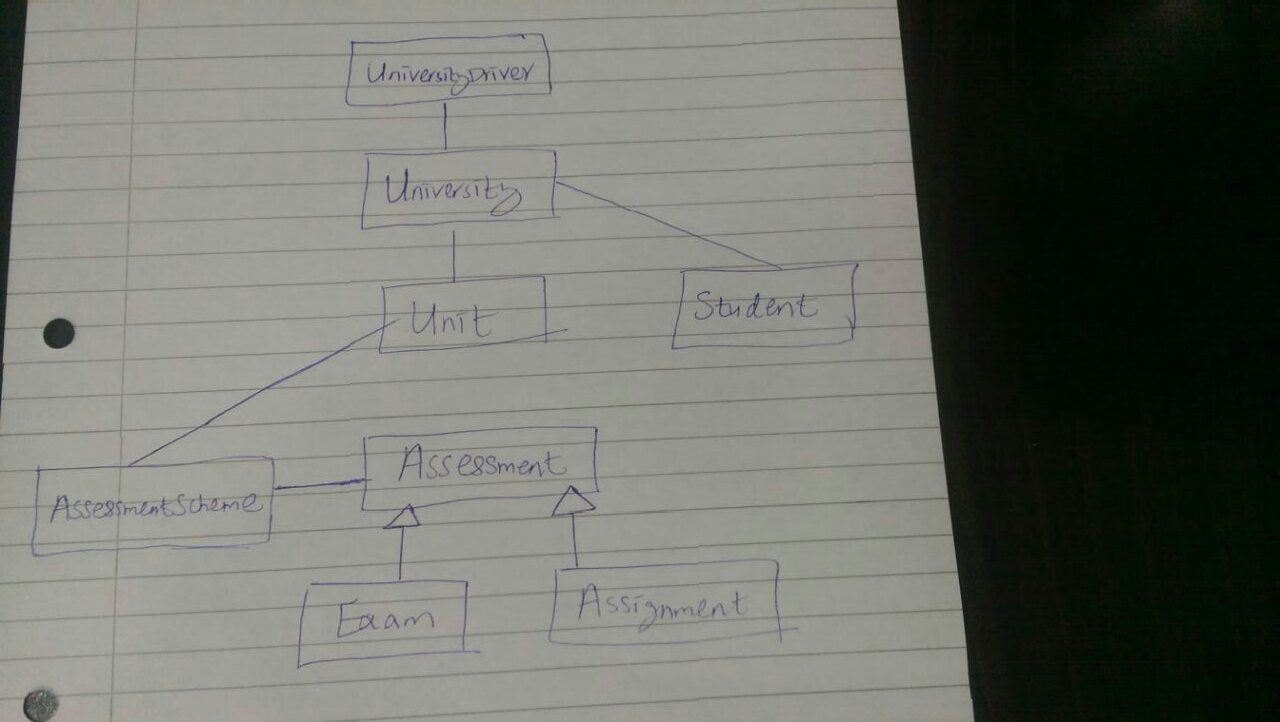 UniversityDriver
University
Unit
Student
Assessment
AssessmentScheme
Exam
Assignment